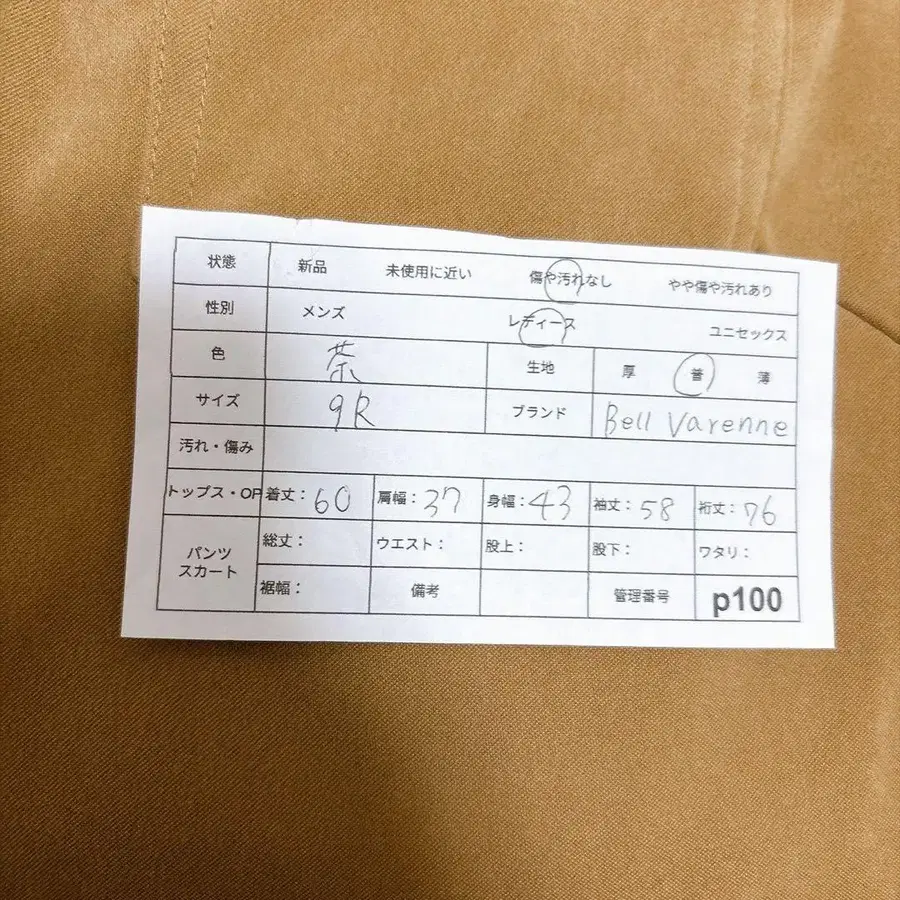 状態 新品 未使用に近い 傷や汚れなし やや傷や汚れあり
性別 メンズ レディース ユニセックス
色 茶 生地 厚 普 薄
サイズ 9R ブランド Bell Varenne
汚れ・傷み
トップス・OP 着丈：60 肩幅：37 身幅：43 袖丈：58 裄丈：76
パンツ スカート 総丈： ウエスト： 股上： 股下： ワタリ：
裾幅： 備考 管理番号 p100